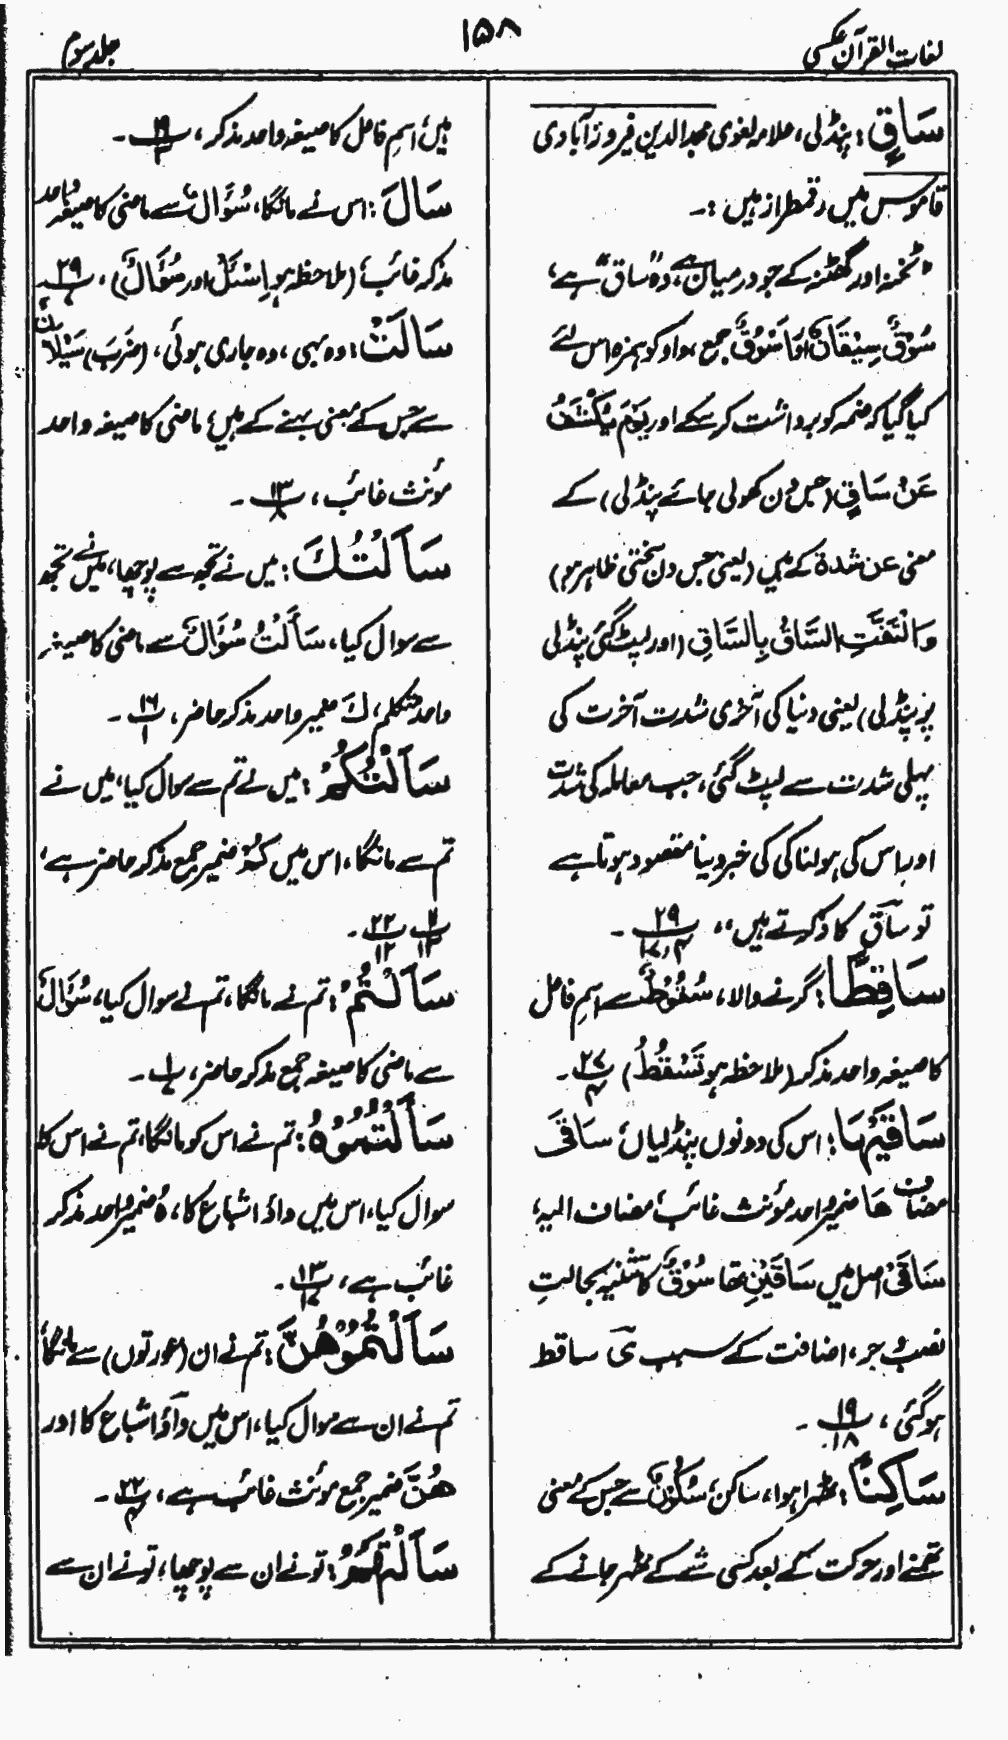 لغات القرآن عکسی
۱۵۸
جلد سوم
سَاقٍ: پنڈلی، علامہ لغوی مجد الدین فیروزآبادی
قاموس میں رقمطراز ہیں :۔
"ٹخنہ اور گھٹنہ کے جو درمیان ہے، وہ "ساق" ہے،
سُوْقٌ سِیْقَانٌ اور اَسْوُقٌ جمع، واو کو ہمزہ اس لئے
کیا گیا کہ ضمہ کو برداشت کر سکے اور یَوْمَ یُکْشَفُ
عَنْ سَاقٍ (جس دن کھولی جائے پنڈلی) کے
معنی عن شدۃ کے ہیں (یعنی جس دن سختی ظاہر ہو)
وَالْتَفَّتِ السَّاقُ بِالسَّاقِ (اور لپٹ گئی پنڈلی
پر پنڈلی) یعنی دنیا کی آخری شدت آخرت کی
پہلی شدت سے لپٹ گئی، جب معاملہ کی شدت
اور اس کی ہولناکی کی خبر دینا مقصود ہوتا ہے
تو ساق کا ذکر کرتے ہیں"، ۲۹ ۔
۱۷،۴
سَاقِطًا: گرنے والا، سُقُوْطٌ سے اسمِ فاعل
کا صیغہ واحد مذکر (ملاحظہ ہو تَسْقُطُ) ۲۷ ۔
۴
سَاقَیْهَا: اس کی دونوں پنڈلیاں، سَاقَیْ
مضاف ھَا ضمیر واحد مؤنث غائب، مضاف الیہ،
سَاقَیْ اصل میں سَاقَیْنِ تھا سُوْقٌ کا تثنیہ بحالتِ
نصب و جر، اضافت کے سبب ی ساقط
ہو گئی، ۱۹ ۔
۱۸
سَاکِنًا: ٹھہرا ہوا، ساکن، سُکُوْنٌ سے جس کے معنی
تھمنے اور حرکت کے بعد کسی شے کے ٹھہر جانے کے
ہیں، اسمِ فاعل کا صیغہ واحد مذکر، ۱۹ ۔
۳
سَاَلَ: اس نے مانگا، سُؤَالٌ سے ماضی کا صیغہ واحد
مذکر غائب، (ملاحظہ ہو اِسْئَلْ اور سُؤَالٌ)، ۲۹
سَالَتْ: وہ بہی، وہ جاری ہوئی، (ضَرَبَ) سَیْلَانٌ
سے جس کے معنی بہنے کے ہیں، ماضی کا صیغہ واحد
مؤنث غائب، ۱۳ ۔
۸
سَاَلْتُكَ: میں نے تجھ سے پوچھا، میں نے تجھ
سے سوال کیا، سَاَلْتُ سُؤَالٌ سے ماضی کا صیغہ
واحد متکلم، كَ ضمیر واحد مذکر حاضر، ۱۶ ۔
۱
سَاَلْتُكُمْ: میں نے تم سے سوال کیا، میں نے
تم سے مانگا، اس میں كُمْ ضمیر جمع مذکر حاضر ہے،
۲۲ ۔
۱۲ ۱۲
سَاَلْتُمْ: تم نے مانگا، تم نے سوال کیا، سُؤَالٌ
سے ماضی کا صیغہ جمع مذکر حاضر، ۱ ۔
سَاَلْتُمُوْهُ: تم نے اس کو مانگا، تم نے اس کا
سوال کیا، اس میں واؤ اشباع کا، هُ ضمیر واحد مذکر
غائب ہے، ۱۳ ۔
۱۷
سَاَلْتُمُوْهُنَّ: تم نے ان (عورتوں) سے مانگا،
تم نے ان سے سوال کیا، اس میں واؤ اشباع کا اور
هُنَّ ضمیر جمع مؤنث غائب ہے، ۲۲ ۔
۴
سَاَلْتَهُمْ: تو نے ان سے پوچھا، تو نے ان سے